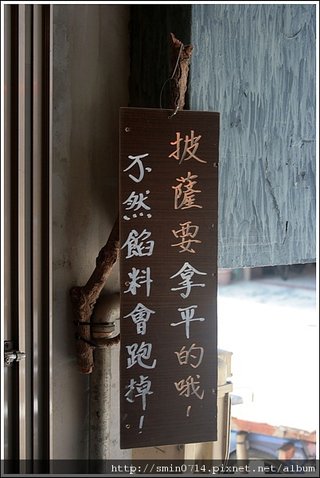 披薩要拿平的哦！
不然餡料會跑掉！
http://smin0714.pixnet.net/album